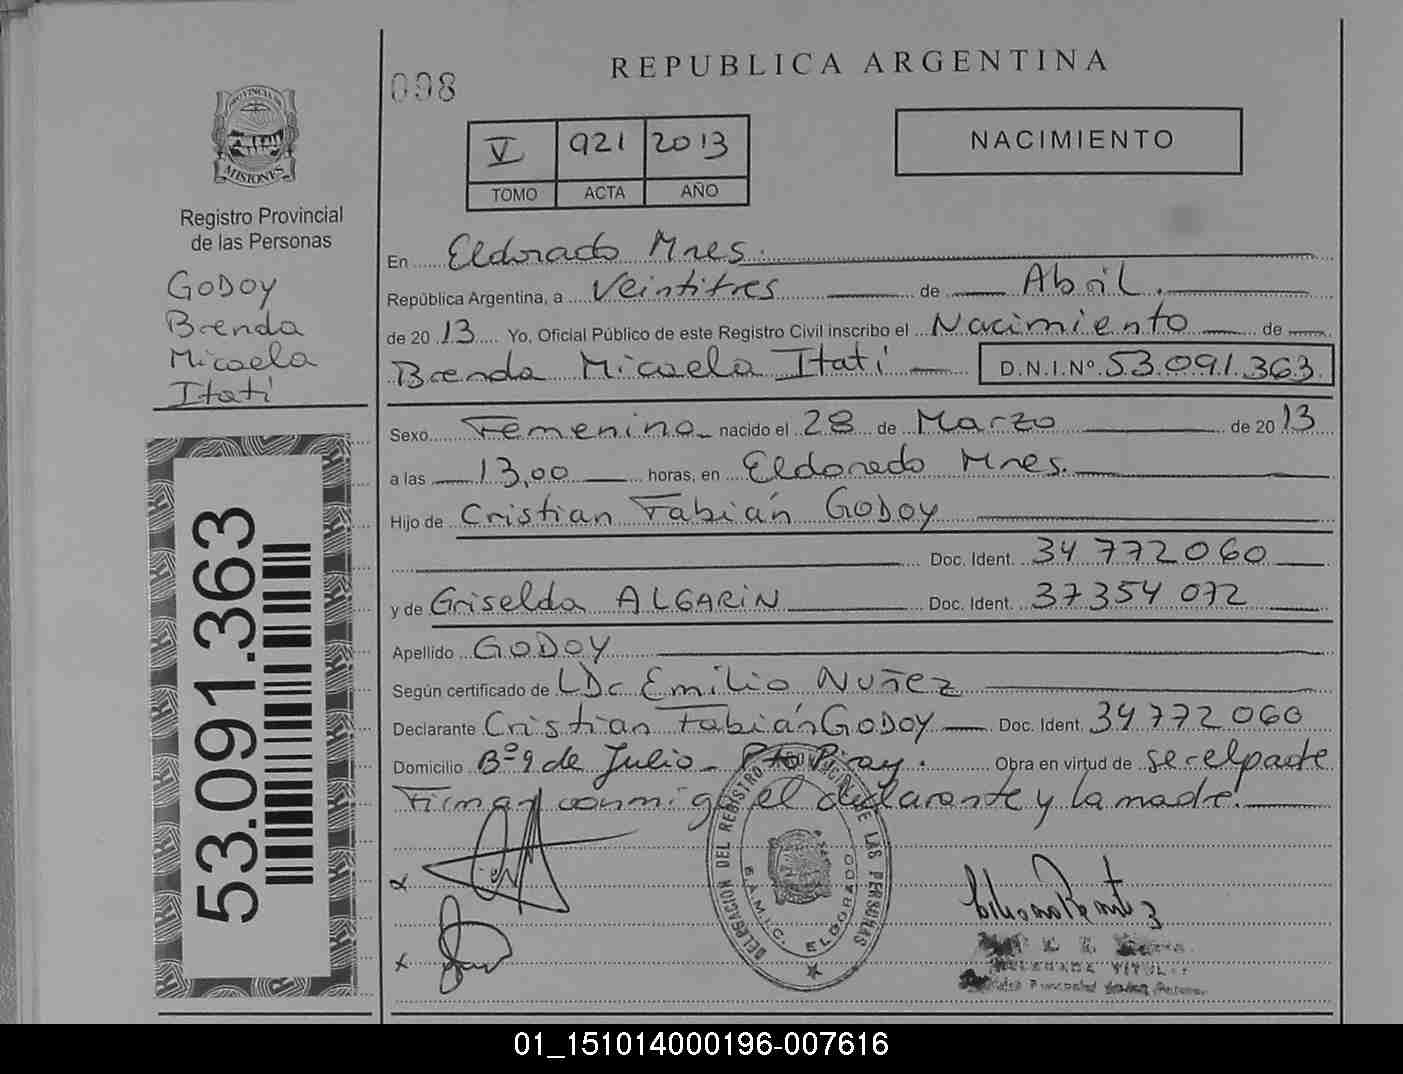 098
REPUBLICA ARGENTINA
V 921 2013
TOMO ACTA AÑO
NACIMIENTO
PROVINCIA DE
MISIONES
Registro Provincial
de las Personas
GODOY
Brenda
Micaela
Itatí
53.091.363
En Eldorado Mnes.
República Argentina, a Veintitres de Abril.
de 20 13 Yo, Oficial Público de este Registro Civil inscribo el Nacimiento de
Brenda Micaela Itatí D.N.I.Nº 53.091.363
Sexo Femenino nacido el 28 de Marzo de 2013
a las 13,00 horas, en Eldorado Mnes.
Hijo de Cristian Fabián GODOY
Doc. Ident. 34 772 060
y de Griselda ALGARIN Doc. Ident. 37354 072
Apellido GODOY
Según certificado de LDc Emilio NUÑEZ
Declarante Cristian Fabián GODOY Doc. Ident. 34 772 060
Domicilio Bº 9 de Julio - Pto Piray. Obra en virtud de ser el padre
Firman conmigo el declarante y la madre.
DELEGACION DEL REGISTRO PROVINCIAL DE LAS PERSONAS
ELDORADO
01_151014000196-007616